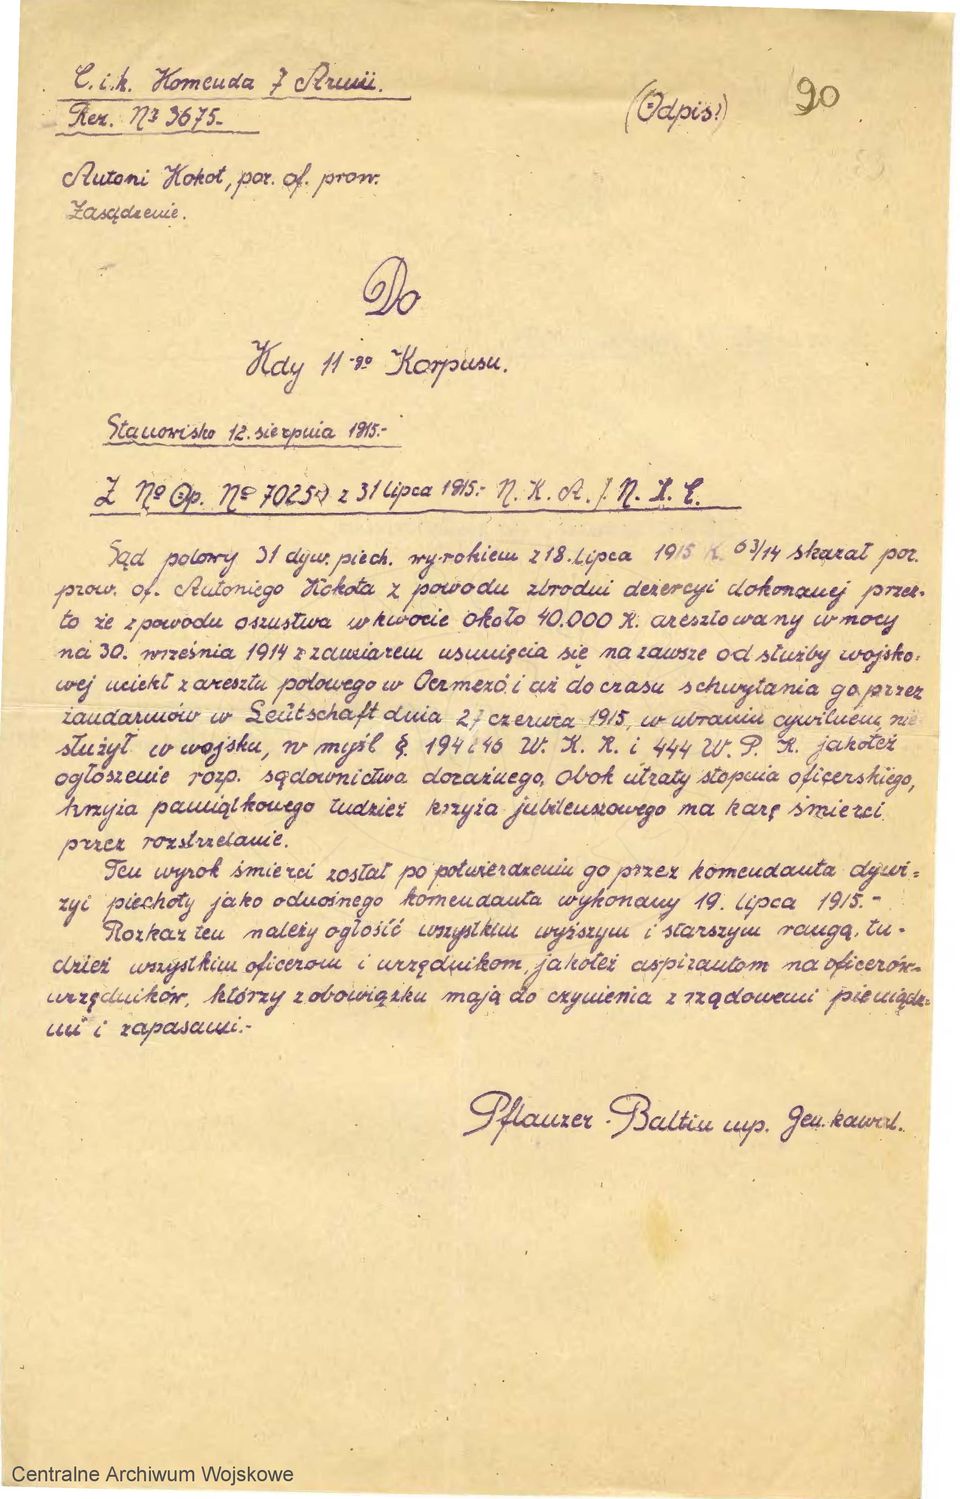 C. i k. Komenda 7 Armii.
Rez. Nr 3675.
(Odpis!)
90
Antoni Kokot, por. of. prow.
Zasądzenie.
Do
Kdy 11-go Korpusu.
Stanowisko 12. sierpnia 1915.-
Z No Op. No 7025 z 31 lipca 1915.- N. K. A. J. N. K. C.
Sąd polowy 31 dyw. piech. wyrokiem z 18. lipca 1915 K. 63/14 skazał por.
prow. of. Antoniego Kokota z powodu zbrodni dezercyi dokonanej przez-
to że z powodu oszustwa w kwocie około 40.000 K. aresztowany w nocy
na 30. września 1914 z zamiarem usunięcia się na zawsze od służby wojsko-
wej uciekł z aresztu polowego w Oermező i aż do czasu schwytania go przez
żandarmów w Leutschaft dnia 27 czerwca 1915, w ubraniu cywilnem nie
służył w wojsku, w myśl §. 194 i 46 W. K. K. i 444 W. P. K. jakoteż
ogłoszenie rozp. sądownictwa doraźnego, obok utraty stopnia oficerskiego,
krzyża pamiątkowego tudzież krzyża jubileuszowego na karę śmierci
przez rozstrzelanie.
Ten wyrok śmierci został po potwierdzeniu go przez komendanta dywi-
zyi piechoty jako odnośnego komendanta wykonany 19. lipca 1915.-
Rozkaz ten należy ogłosić wszystkim wyższym i starszym rangą, tu-
dzież wszystkim oficerom i urzędnikom, jakoteż aspirantom na oficerów-
urzędników, którzy z obowiązku mają do czynienia z rządowemi pieniądz-
mi i zapasami.-
Pflanzer-Baltin mp. Gen. kawal.
Centralne Archiwum Wojskowe